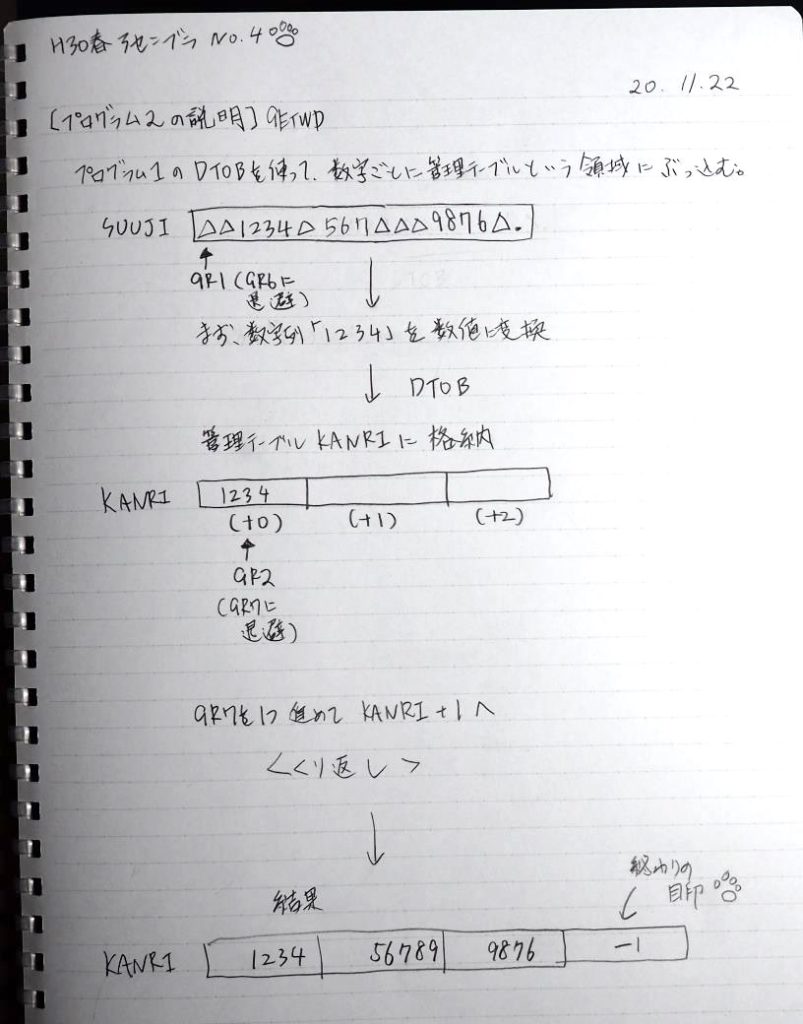 H30春 アセンブラ No.4
20.11.22
[プログラム2の説明] GETWD
プログラム1のDTOBを使って、数字ごとに管理テーブルという領域にぶっ込む。
SUUJI △△1234△567△△△9876△.
GR1(GR6に
退避)
まず、数字列「1234」を数値に変換
DTOB
管理テーブルKANRIに格納
KANRI 1234
(+0) (+1) (+2)
GR2
(GR7に
退避)
GR7を1つ進めてKANRI+1へ
<くり返し>
終わりの
目印
結果
KANRI 1234 56789 9876 -1